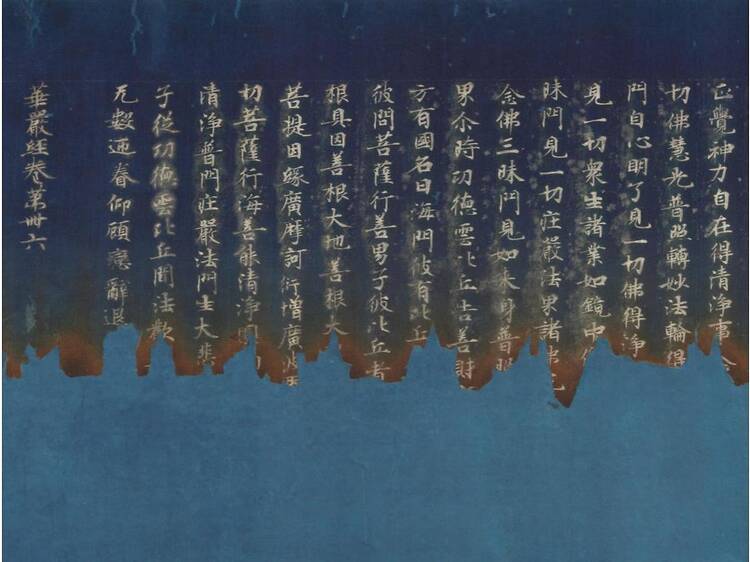 正覺神力自在得清淨事
切佛慧光普照轉妙法輪得
門自心明了見一切佛得淨
見一切衆生諸業如鏡中
昧門見一切莊嚴法界諸
念佛三昧門見如來身普照
果尒時功德雲比丘告善財
方有國名曰海門彼有比丘
彼問菩薩行善男子彼比丘者
根具因善根大地善根大
菩提因緣廣摩訶衍增廣
切菩薩行海善能清淨
清淨普門莊嚴法門生大悲
子從功德雲比丘聞法歡
无數迊眷仰顧戀辭退
華嚴經卷第卅六